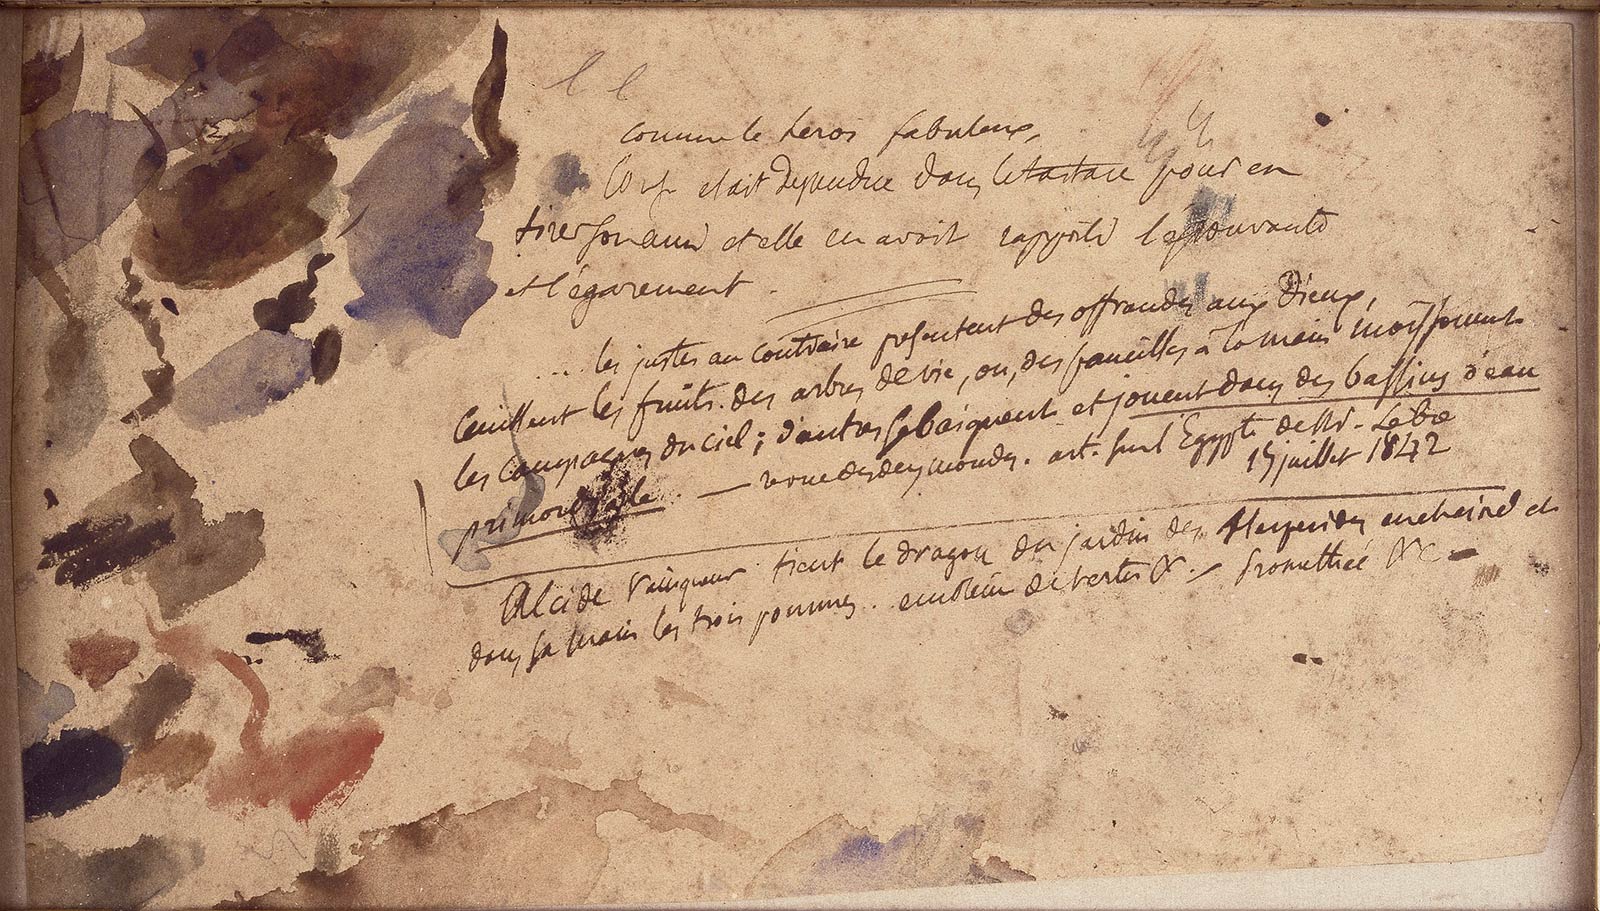 comme le heros fabuleux,
était descendue dans le tartare pour en
tirer son ami et elle en avait rapporté l'épouvante
et l'égarement.
.... les justes au contraire présentent des offrandes aux Dieux,
Cueillent les fruits des arbres de vie, ou, des faucilles à la main moissonnent
les campagnes du ciel ; d'autres se baignent et jouent dans des bassins d'eau
primordiale. — revue des deux mondes. art. sur l'Egypte de Mr. Lèbre
15 juillet 1842
Alcide vainqueur tient le dragon du jardin des Hesperides enchainé et
dans sa main les trois pommes. de vertu &. — Promethée &c —